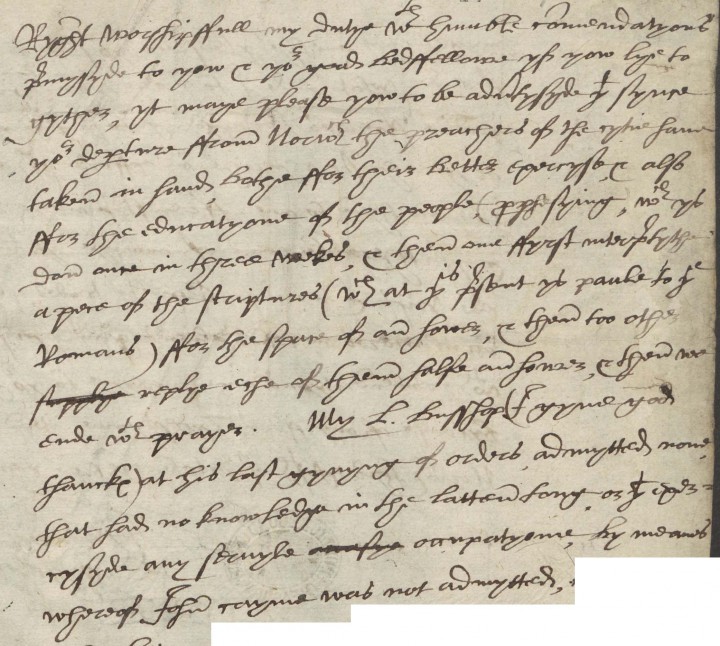 Ryght worshipffull my dutye wth humble comendatyons
p'mysyde to yow & yor good bedffellowe yff yow lye to
gyther, yt maye please yow to be adv'tysyde yt synce
yor dep'ture ffrom Norwch the preachers off the cytie have
taken in hand, bothe ffor their better exercyse & also
ffor the educatyone off the people, prophesying, wch ys
don once in three weekes, & then one ffyrst interp'tythe
a pece off the scriptures (wch at ys p'sent ys paule to ye
Romans) ffor the space off an hower, & then too other
supplye replye eche off them halfe an hower, & then wee
ende wth prayer. My L. busshop (I gyve god
thanckes) at his last gyvyng off orders admytted none,
that had no knowledge in the latten tong, or yt exer=
cysyde any servyle occupatyone, by meanes
wheroff John cayme was not admytted,